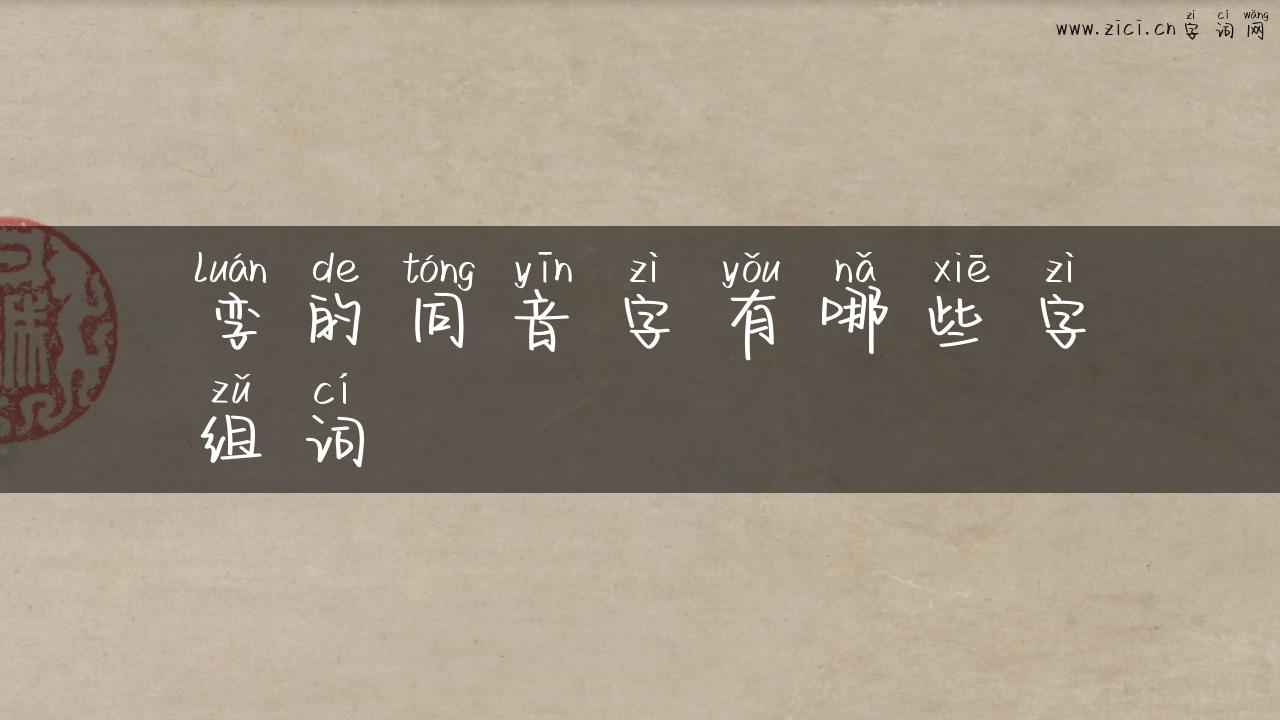 zì cí wǎng
www.zici.cn 字词网
luán de tóng yīn zì yǒu nǎ xiē zì
孪的同音字有哪些字
zǔ cí
组词